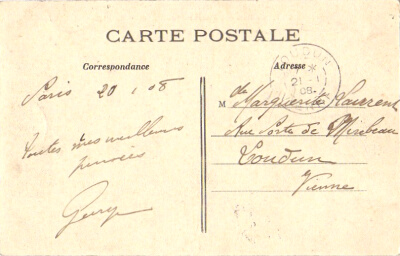 CARTE POSTALE
Correspondance
Adresse
LOUDUN
21 -1
08
Paris 20 1 08
Toutes mes meilleurs
pensées
Georges
M de Marguerite Laurent
Rue Porte de Mirebeau
Loudun
Vienne